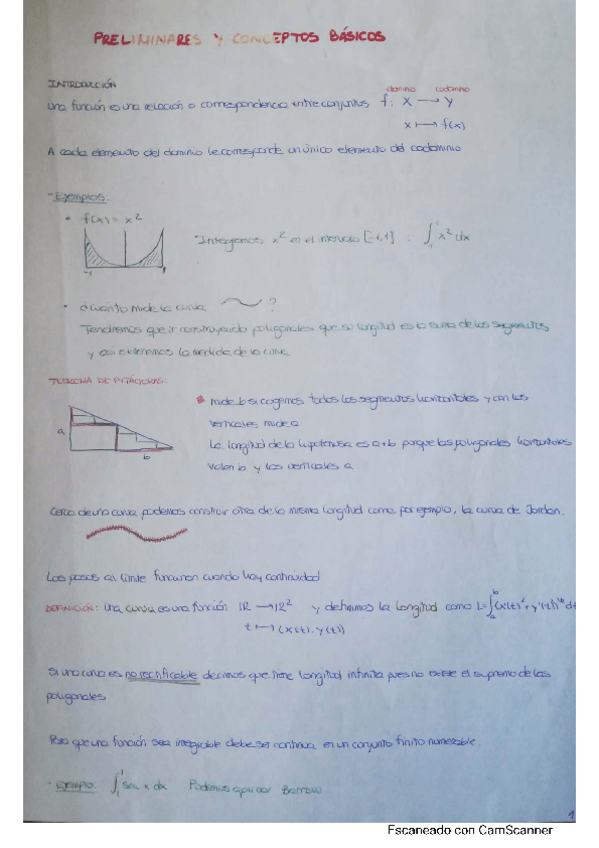 PRELIMINARES Y CONCEPTOS BÁSICOS
INTRODUCCIÓN
dominio codominio
Una función es una relación o correspondencia entre conjuntos f: X → Y
x ↦ f(x)
A cada elemento del dominio le corresponde un único elemento del codominio
- Ejemplos:
• f(x) = x²
Integramos x² en el intervalo [-1,1] : ∫₋₁¹ x² dx
-1 1
• ¿Cuánto mide la curva ?
Tendremos que ir construyendo poligonales que su longitud es la suma de los segmentos
y así obtenemos la medida de la curva
TEOREMA DE PITÁGORAS:
* mide b si cogemos todos los segmentos horizontales y con los
verticales mide a
a
La longitud de la hipotenusa es a+b porque las poligonales horizontales
b
valen b y las verticales a
Cerca de una curva podemos construir otra de la misma longitud como, por ejemplo, la curva de Jordan.
Los pasos al límite funcionan cuando hay continuidad
DEFINICIÓN: Una curva es una función ℝ → ℝ² y definimos la longitud como L=∫ₐᵇ (x'(t)² + y'(t)²)^½ dt
t ↦ (x(t), y(t))
Si una curva es no rectificable decimos que tiene longitud infinita pues no existe el supremo de las
poligonales
Para que una función sea integrable debe ser continua en un conjunto finito numerable.
- EJEMPLO: ∫₋₁¹ sen x dx Podemos aplicar Barrow
1
Escaneado con CamScanner